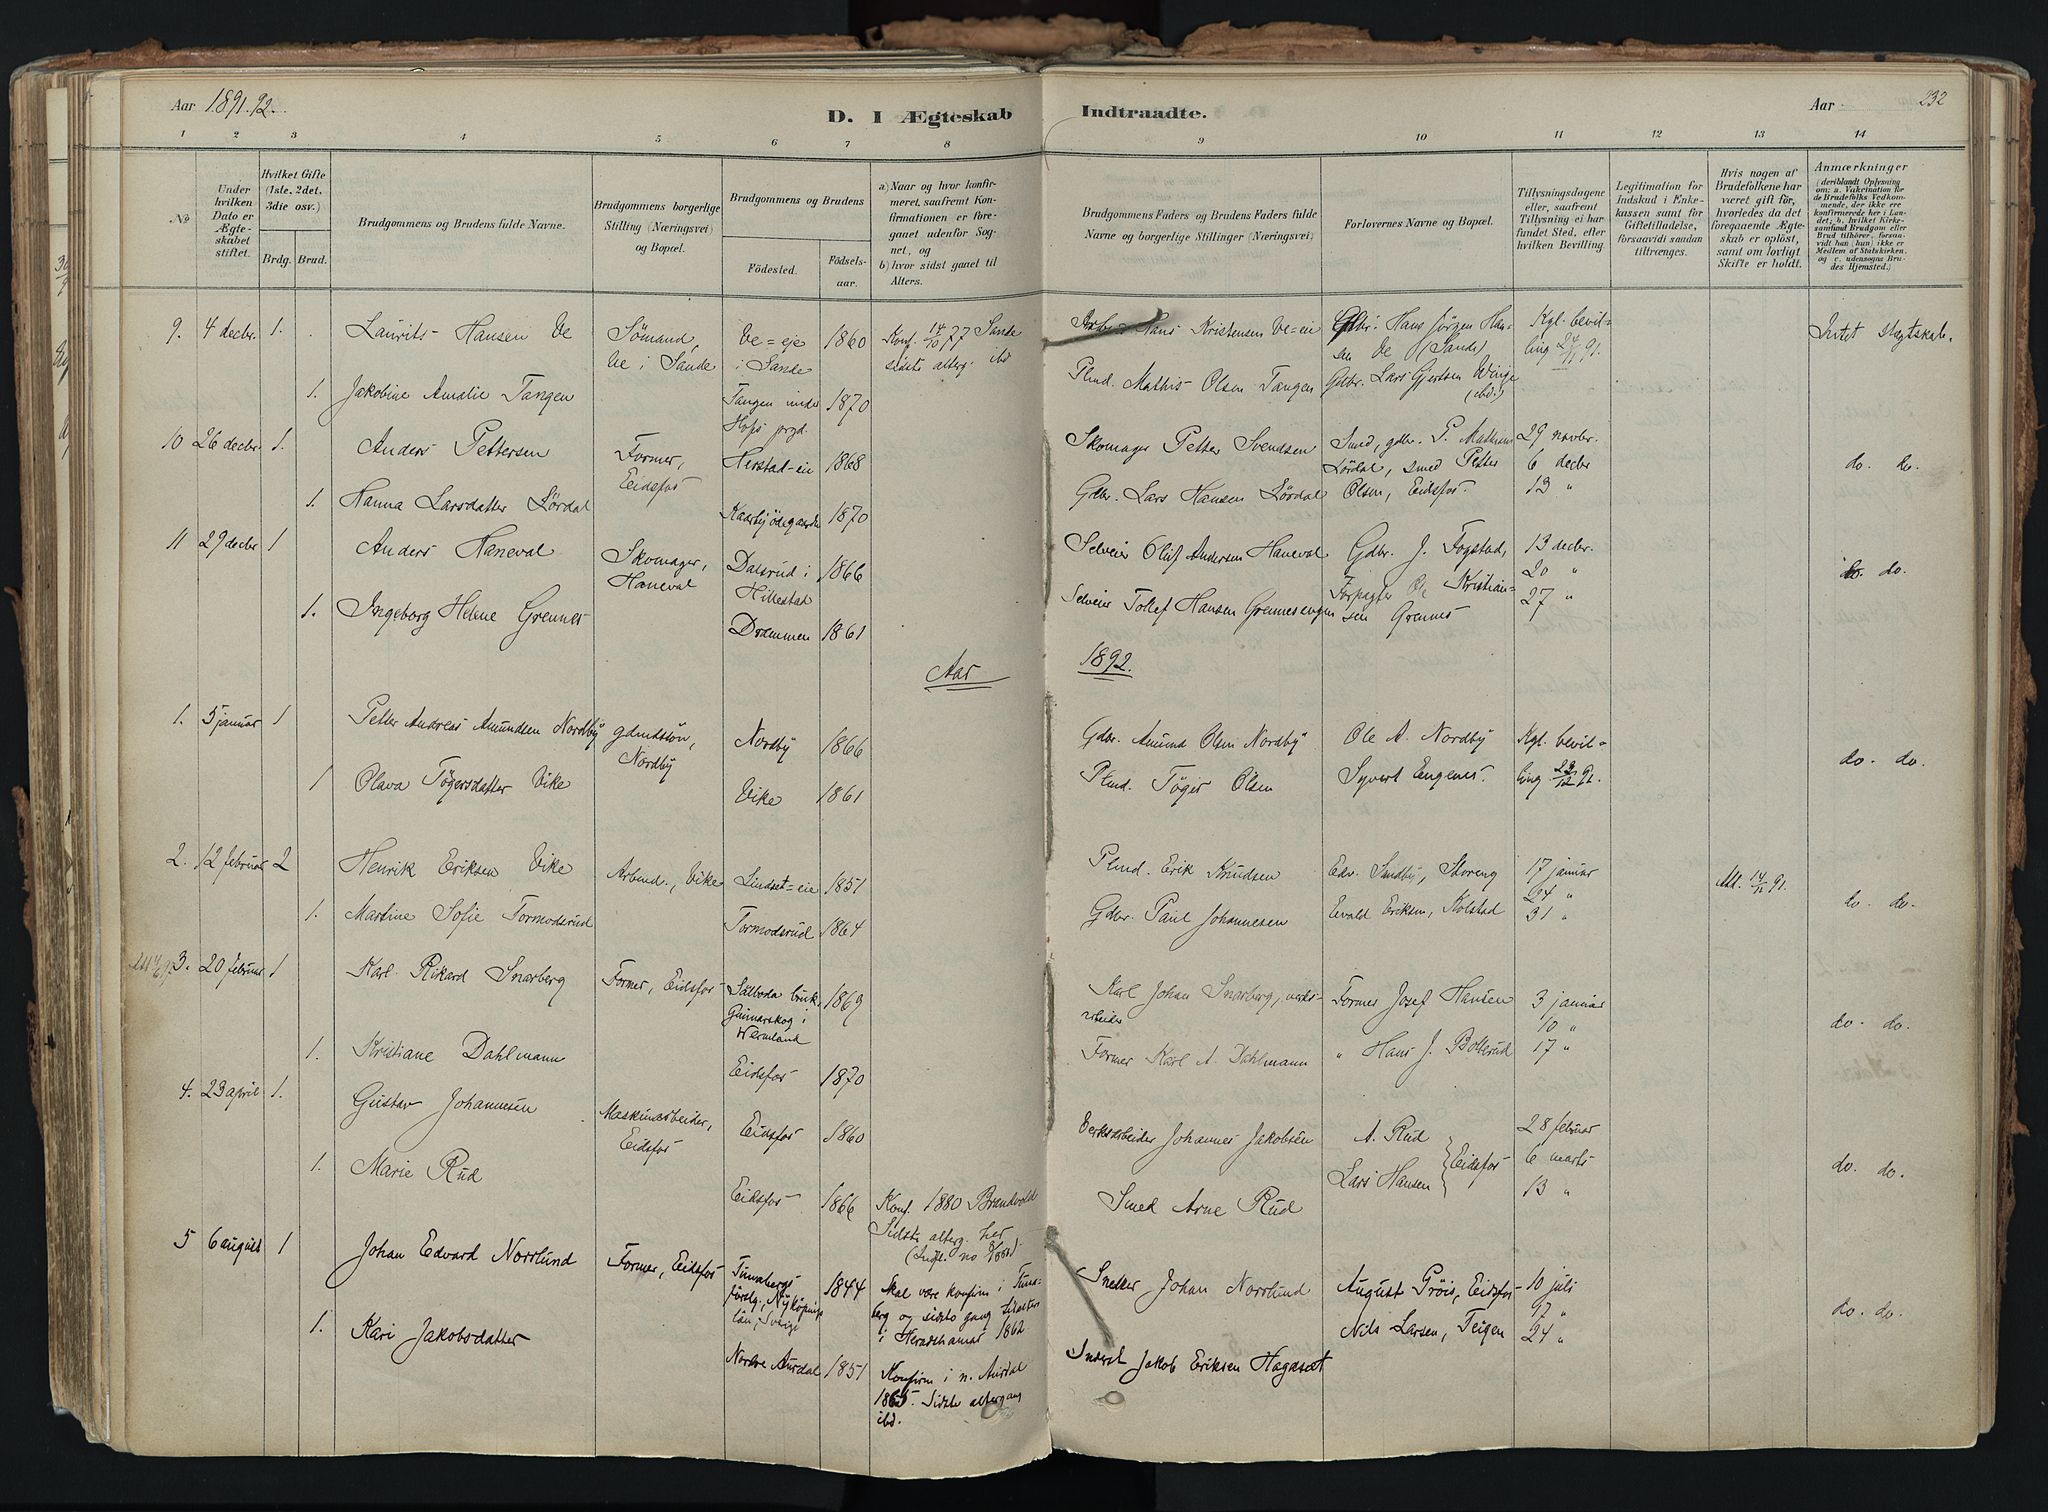 Aar 1891.92.
D. I Ægteskab Indtraadte.
Aar
232
1 2 3 4 5 6 7 8 9 10 11 12 13 14
No
Under hvilken Dato er Ægteskabet stiftet.
Hvilket Gifte (1ste, 2det, 3die osv.)
Brdg. Brud.
Brudgommens og Brudens fulde Navne.
Brudgommens borgerlige Stilling (Næringsvei) og Bopæl.
Brudgommens og Brudens
Födested.
Födselsaar.
a) Naar og hvor konfirmeret, saafremt Konfirmationen er foregaaet udenfor Sognet, og
b) hvor sidst gaaet til Alters.
Brudgommens Faders og Brudens Faders fulde Navne og borgerlige Stillinger (Næringsvei)
Forlovernes Navne og Bopæl.
Tillysningsdagene eller, saafremt Tillysning ei har fundet Sted, efter hvilken Bevilling.
Legitimation for Indskud i Enkekassen samt for Giftetilladelse, forsaavidt saadan tiltrænges.
Hvis nogen af Brudefolkene har været gift før, hvorledes da det foregaaende Ægteskab er oplöst, samt om lovligt Skifte er holdt.
Anmærkninger
(deriblandt Oplysning om: a. Vakcination for de Brudefolks Vedkommende, der ikke ere konfirmerede her i Landet; b. hvilket Kirkesamfund Brudgom eller Brud tilhörer, forsaavidt han (hun) ikke er Medlem af Statskirken, og c. udensogns Brudes Hjemsted.)
9. 4 decbr. 1. Laurits Hansen Ve Sömand, Ve i Sande Ve=eje i Sande 1860 Konf. 14/10 77 Sande sidste alterg. ibd Hans Kristensen Ve=eie Gdbr. Hans Jörgen Hansen Ve (Sande) Kgl. bevilling 24/11 91. Intet slegtskab.
1. Jakobine Amalie Tangen Tangen under Hofs prgd. 1870 Plmd. Mathis Olsen Tangen Gdbr. Lars Gjertsen Winge (ibd.)
10 26 decbr. 1. Anders Pettersen Former, Eidsfos Herstad-eie 1868 Skomager Petter Svendsen Smed, gdbr. P. Mathisen Lördal, smed Petter Olsen, Eidsfos. 29 novbr. 6 decbr 13 " do. do.
1. Hanna Larsdatter Lördal Kaarbyödegaarden 1870 Gdbr. Lars Hansen Lördal
11 29 decbr 1 Anders Haneval Skomager, Haneval Dalsrud i Hillestad 1866 Selveier Oluf Andersen Haneval Gdbr. J. Fogstad, Forpagter Ole Kristiansen Grennes 13 decbr. 20 " 27 " do. do.
1. Ingeborg Helene Grennes Drammen 1861 Selveier Tollef Hansen Grennesengen
Aar 1892.
1. 5 januar 1 Petter Andreas Amundsen Nordby gdmdssön, Nordby Nordby 1866 Gdbr. Amund Olsen Nordby Ole A. Nordby Kgl. bevilling 23/12 91. do. do.
1 Olava Tögersdatter Vike Vike 1861 Plmd. Töger Olsen Syvert Engenes.
2. 12 februar 2 Henrik Eriksen Vike Arbmd., Vike Lindset=eie 1851 Plmd. Erik Knudsen Edv. Sundby, Storeng 17 januar 24 " 31 " Att. 14/11 91. do. do.
1. Martine Sofie Tormodsrud Tormodsrud 1864 Gdbr. Paul Johannesen Evald Eriksen, Kolstad
3. 20 februar 1 Karl Rikard Snarberg Former, Eidsfos Sälboda bruk Gunnarskog i Wermland 1869 Karl Johan Snarberg, verksarbeider Former Josef Hansen 3 januar 10 " 17 " do. do.
1. Kristiane Dahlmann Eidsfos 1870 Former Karl A. Dahlmann " Hans J. Bolerud
4. 23 april 1. Gustav Johannesen Maskinarbeider, Eidsfos Eidsfos 1860 Verksarbeider Johannes Jakobsen A. Rud Lars Hansen } Eidsfos 28 februar 6 marts 13 " do. do.
1. Marie Rud Eidsfos 1866 Konf. 1880 Brandvold Sidste alterg. her Smed Arne Rud
5 6 august 1 Johan Edvard Norrlund Former, Eidsfos Tunabergs forslg., Nyköpings län, Sverige 1844 Skal være konfirm. i Tunaberg og sidste gang tilalters i Herradshamar 1862 Snekker Johan Norrlund August Gröis, Eidsfos Nils Larsen, Teigen 10 juli 17 " 24 " do. do.
1. Kari Jakobsdatter Nordre Aurdal 1851 Konfirm i n. Aurdal 1865. Sidste altergang ibd. Inderst Jakob Eriksen Hagaset